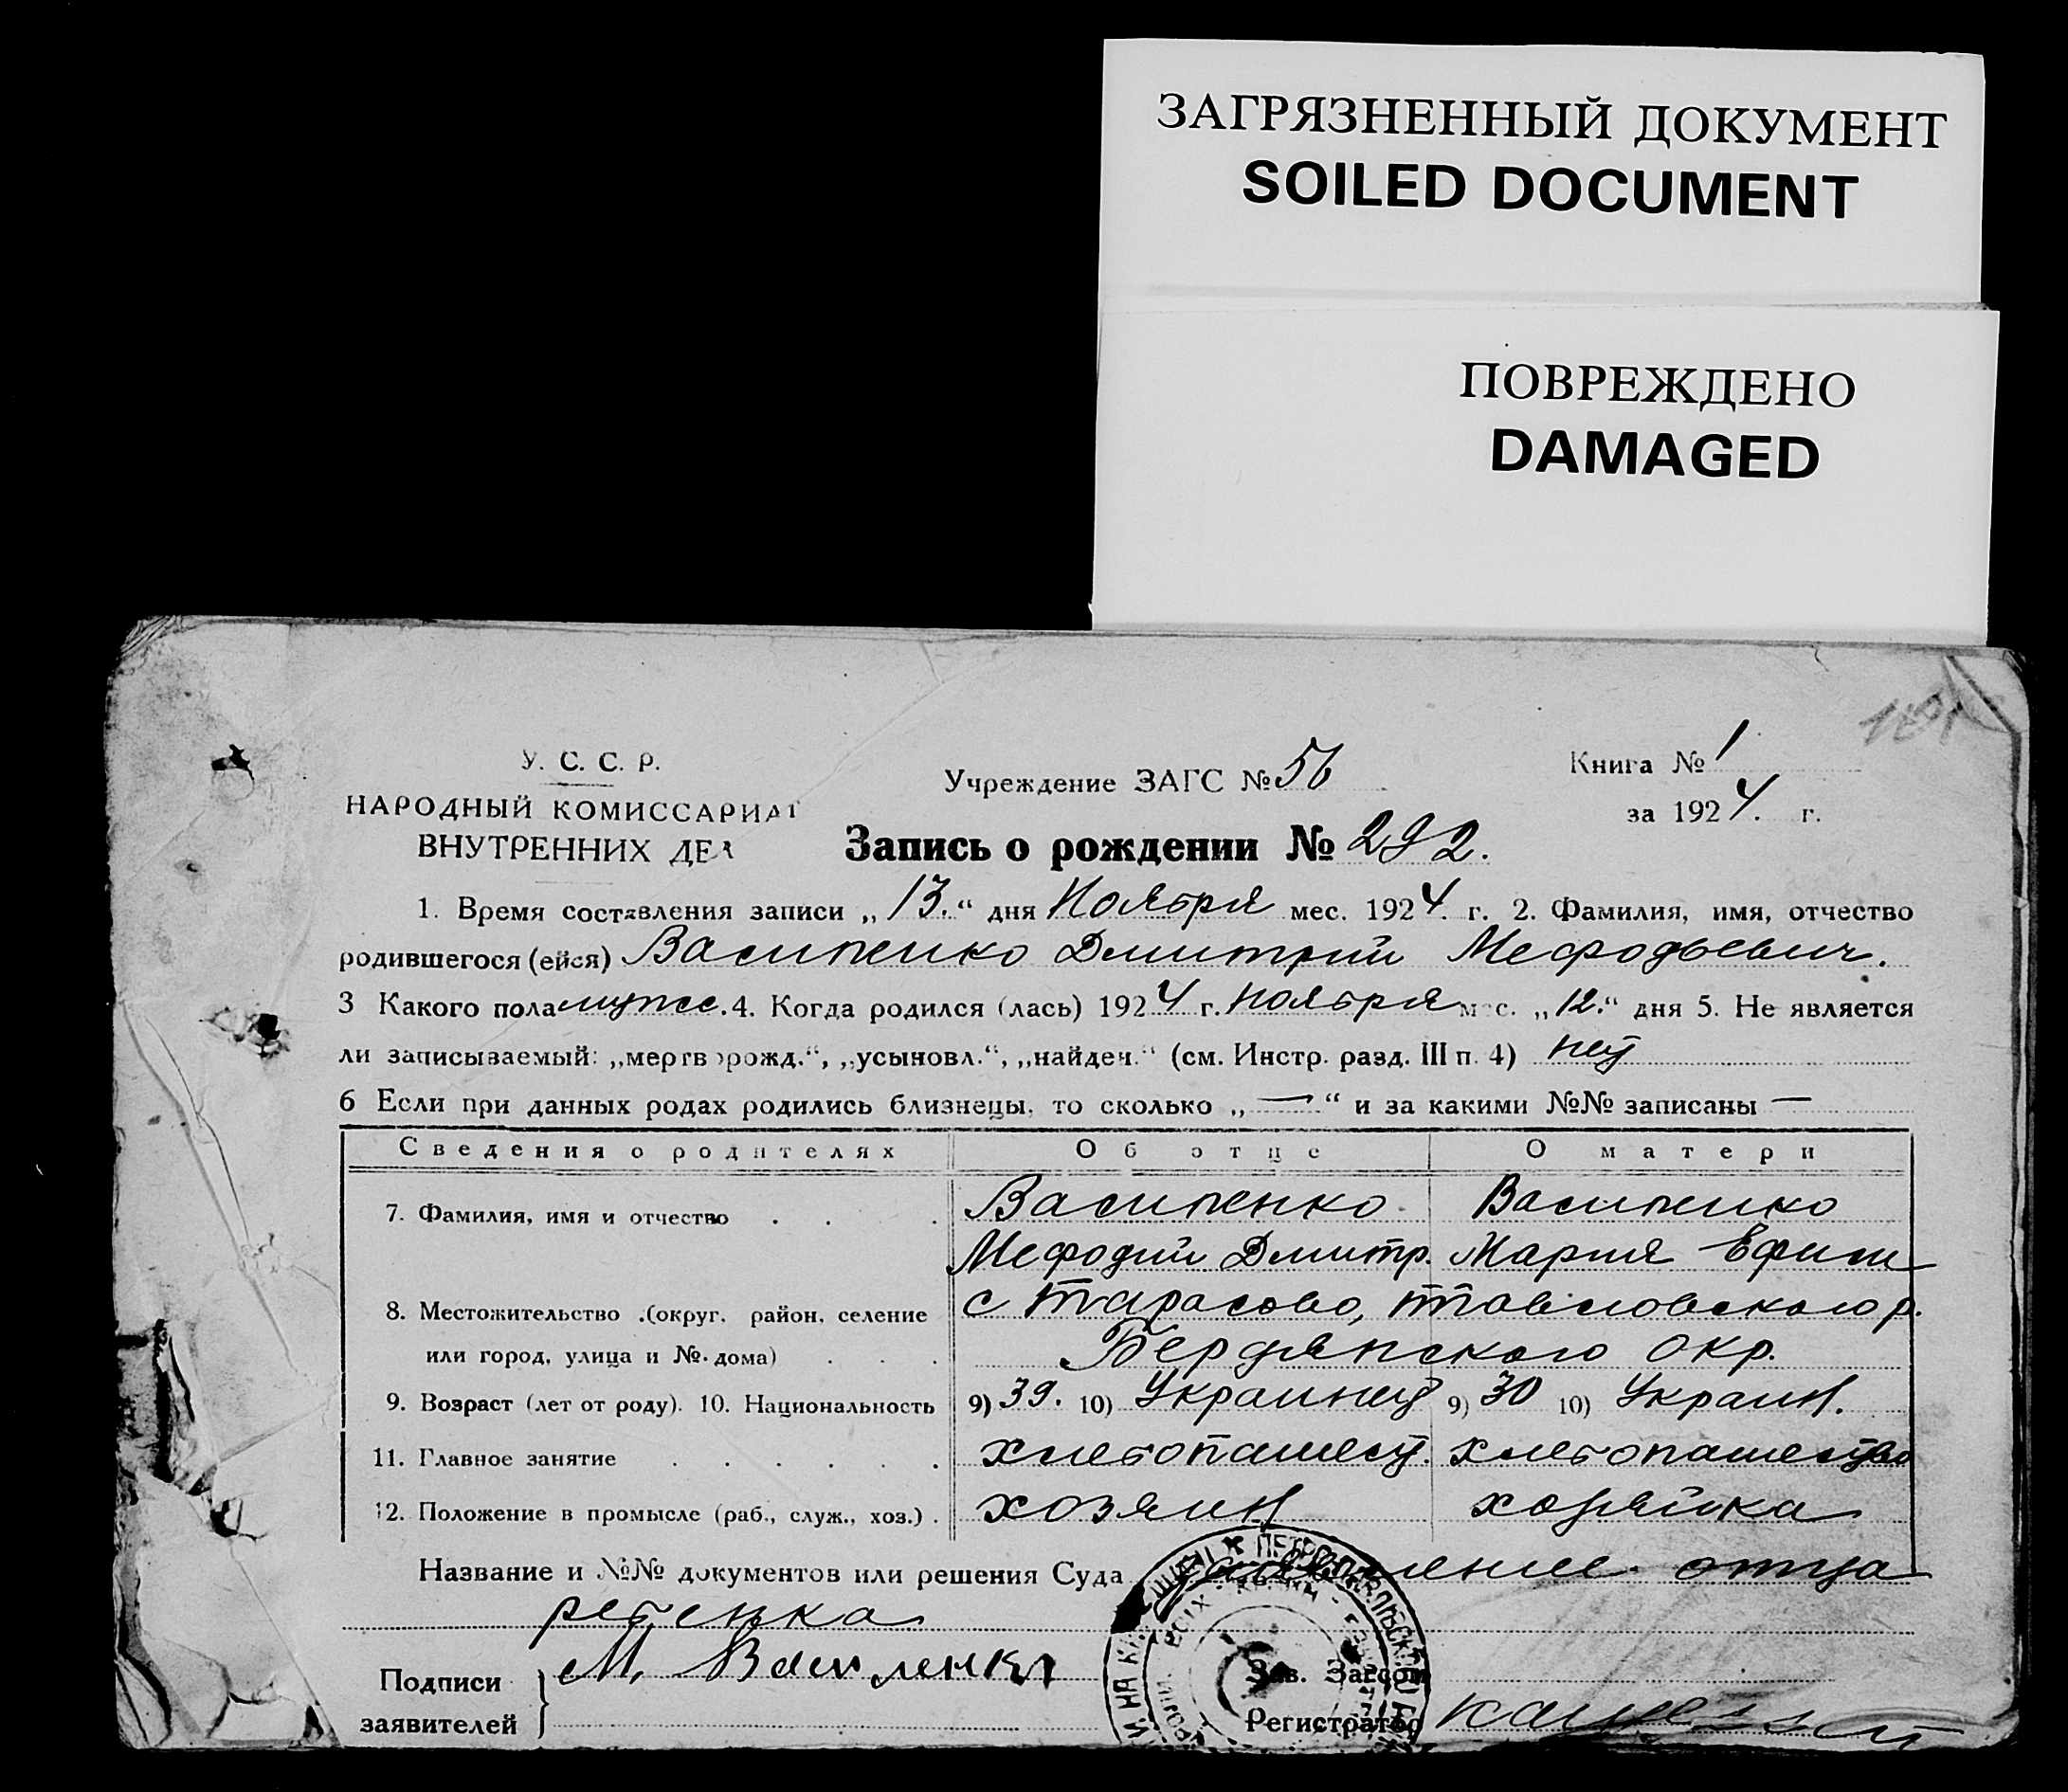 ЗАГРЯЗНЕННЫЙ ДОКУМЕНТ
SOILED DOCUMENT
ПОВРЕЖДЕНО
DAMAGED
У. С. С. Р.
НАРОДНЫЙ КОМИССАРИАТ
ВНУТРЕННИХ ДЕЛ
Учреждение ЗАГС № 56
Книга № 1
за 1924. г.
Запись о рождении № 292.
1. Время составления записи „13.“ дня Ноября мес. 1924. г. 2. Фамилия, имя, отчество
родившегося (ейся) Василенко Дмитрий Мефодьевич.
3 Какого пола мужс. 4. Когда родился (лась) 1924 г. ноября мес. „12.“ дня 5. Не является
ли записываемый: „мертворожд.“, „усыновл.“, „найден.“ (см. Инстр. разд. III п. 4) нет
6 Если при данных родах родились близнецы, то сколько „—“ и за какими №№ записаны —
Сведения о родителях Об отце О матери
7. Фамилия, имя и отчество Василенко Василенко
Мефодий Дмитр. Мария Ефим
8. Местожительство (округ, район, селение с Тарасово, р.
или город, улица и №. дома) Бердянского окр.
9. Возраст (лет от роду). 10. Национальность 9) 39. 10) Украинец 9) 30 10) Украин.
11. Главное занятие хлебопашест. хлебопашество
12. Положение в промысле (раб., служ., хоз.) . хозяин хозяйка
Название и №№ документов или решения Суда заявление отца
ребенка
Подписи заявителей М. Василенко
Зав. Загсом
Регистратор